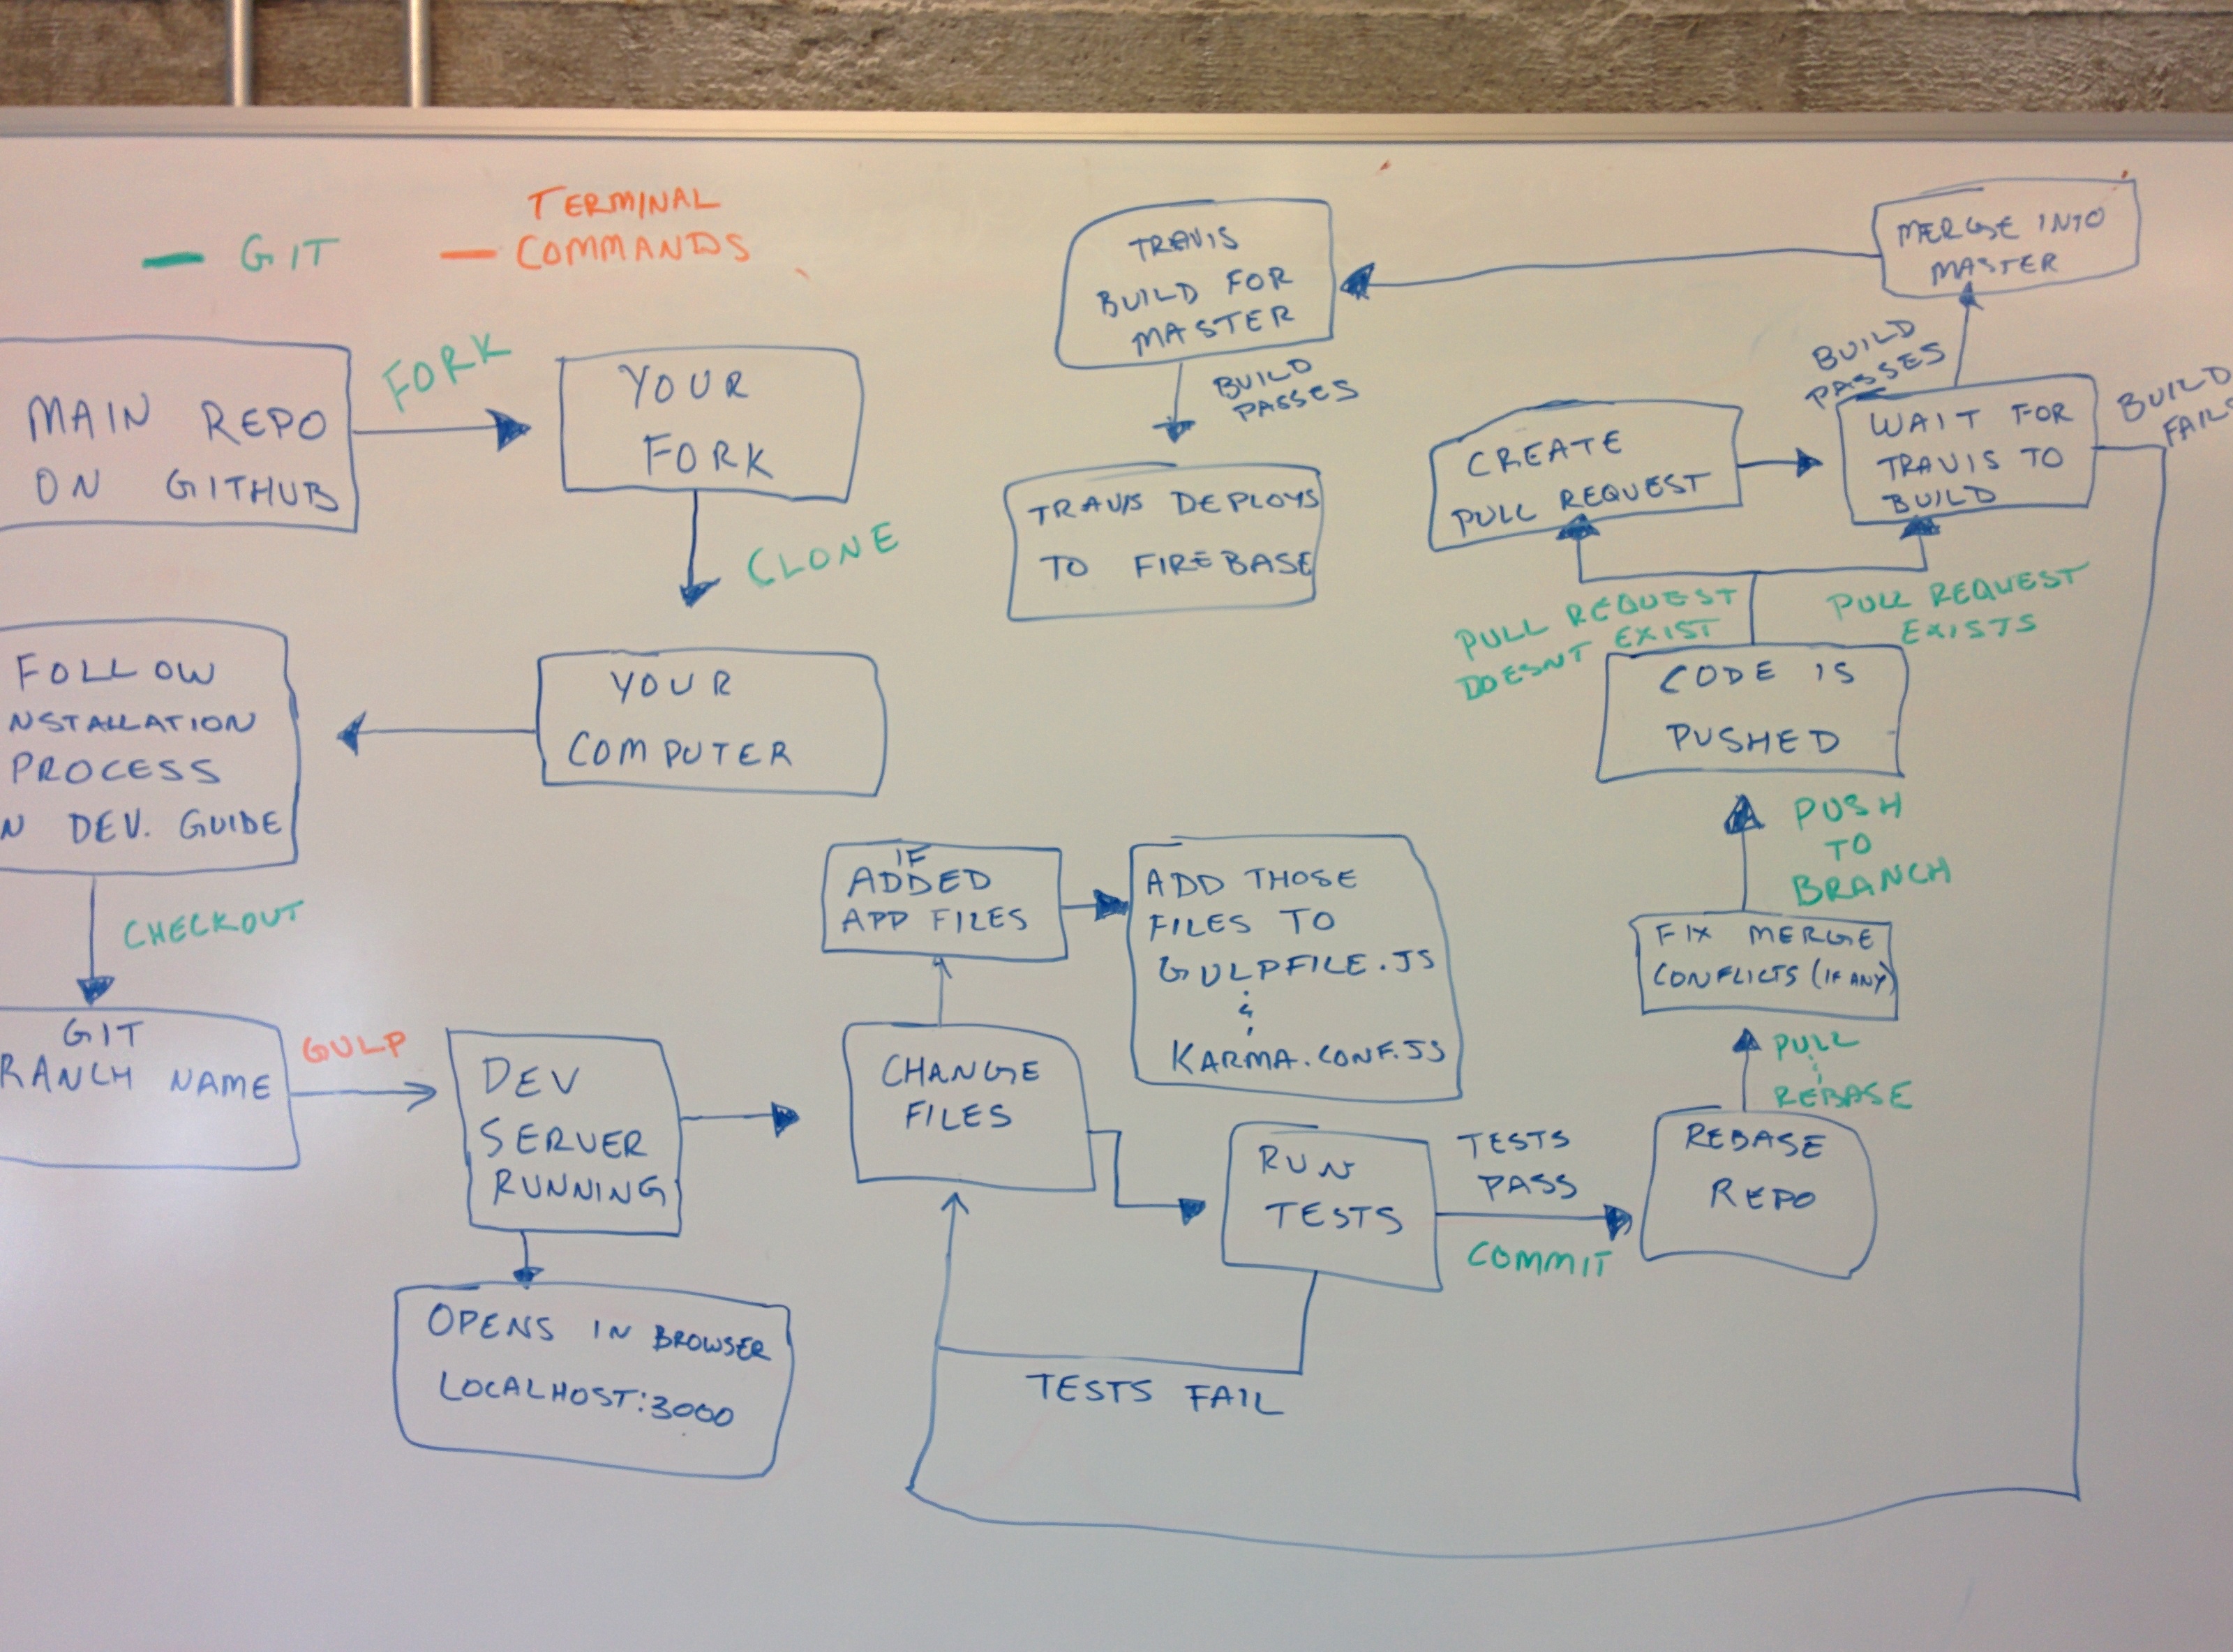 GIT
TERMINAL
COMMANDS
MAIN REPO
ON GITHUB
FORK
YOUR
FORK
CLONE
YOUR
COMPUTER
FOLLOW
NSTALLATION
PROCESS
N DEV. GUIDE
CHECKOUT
GIT
RANCH NAME
GULP
DEV
SERVER
RUNNING
OPENS IN BROWSER
LOCALHOST:3000
CHANGE
FILES
IF
ADDED
APP FILES
ADD THOSE
FILES TO
GULPFILE.JS
&
KARMA.CONF.JS
RUN
TESTS
TESTS FAIL
TESTS
PASS
COMMIT
REBASE
REPO
PULL
&
REBASE
FIX MERGE
CONFLICTS (IF ANY)
PUSH
TO
BRANCH
CODE IS
PUSHED
PULL REQUEST
DOESNT EXIST
PULL REQUEST
EXISTS
CREATE
PULL REQUEST
WAIT FOR
TRAVIS TO
BUILD
BUILD
FAILS
BUILD
PASSES
MERGE INTO
MASTER
TRAVIS
BUILD FOR
MASTER
BUILD
PASSES
TRAVIS DEPLOYS
TO FIREBASE